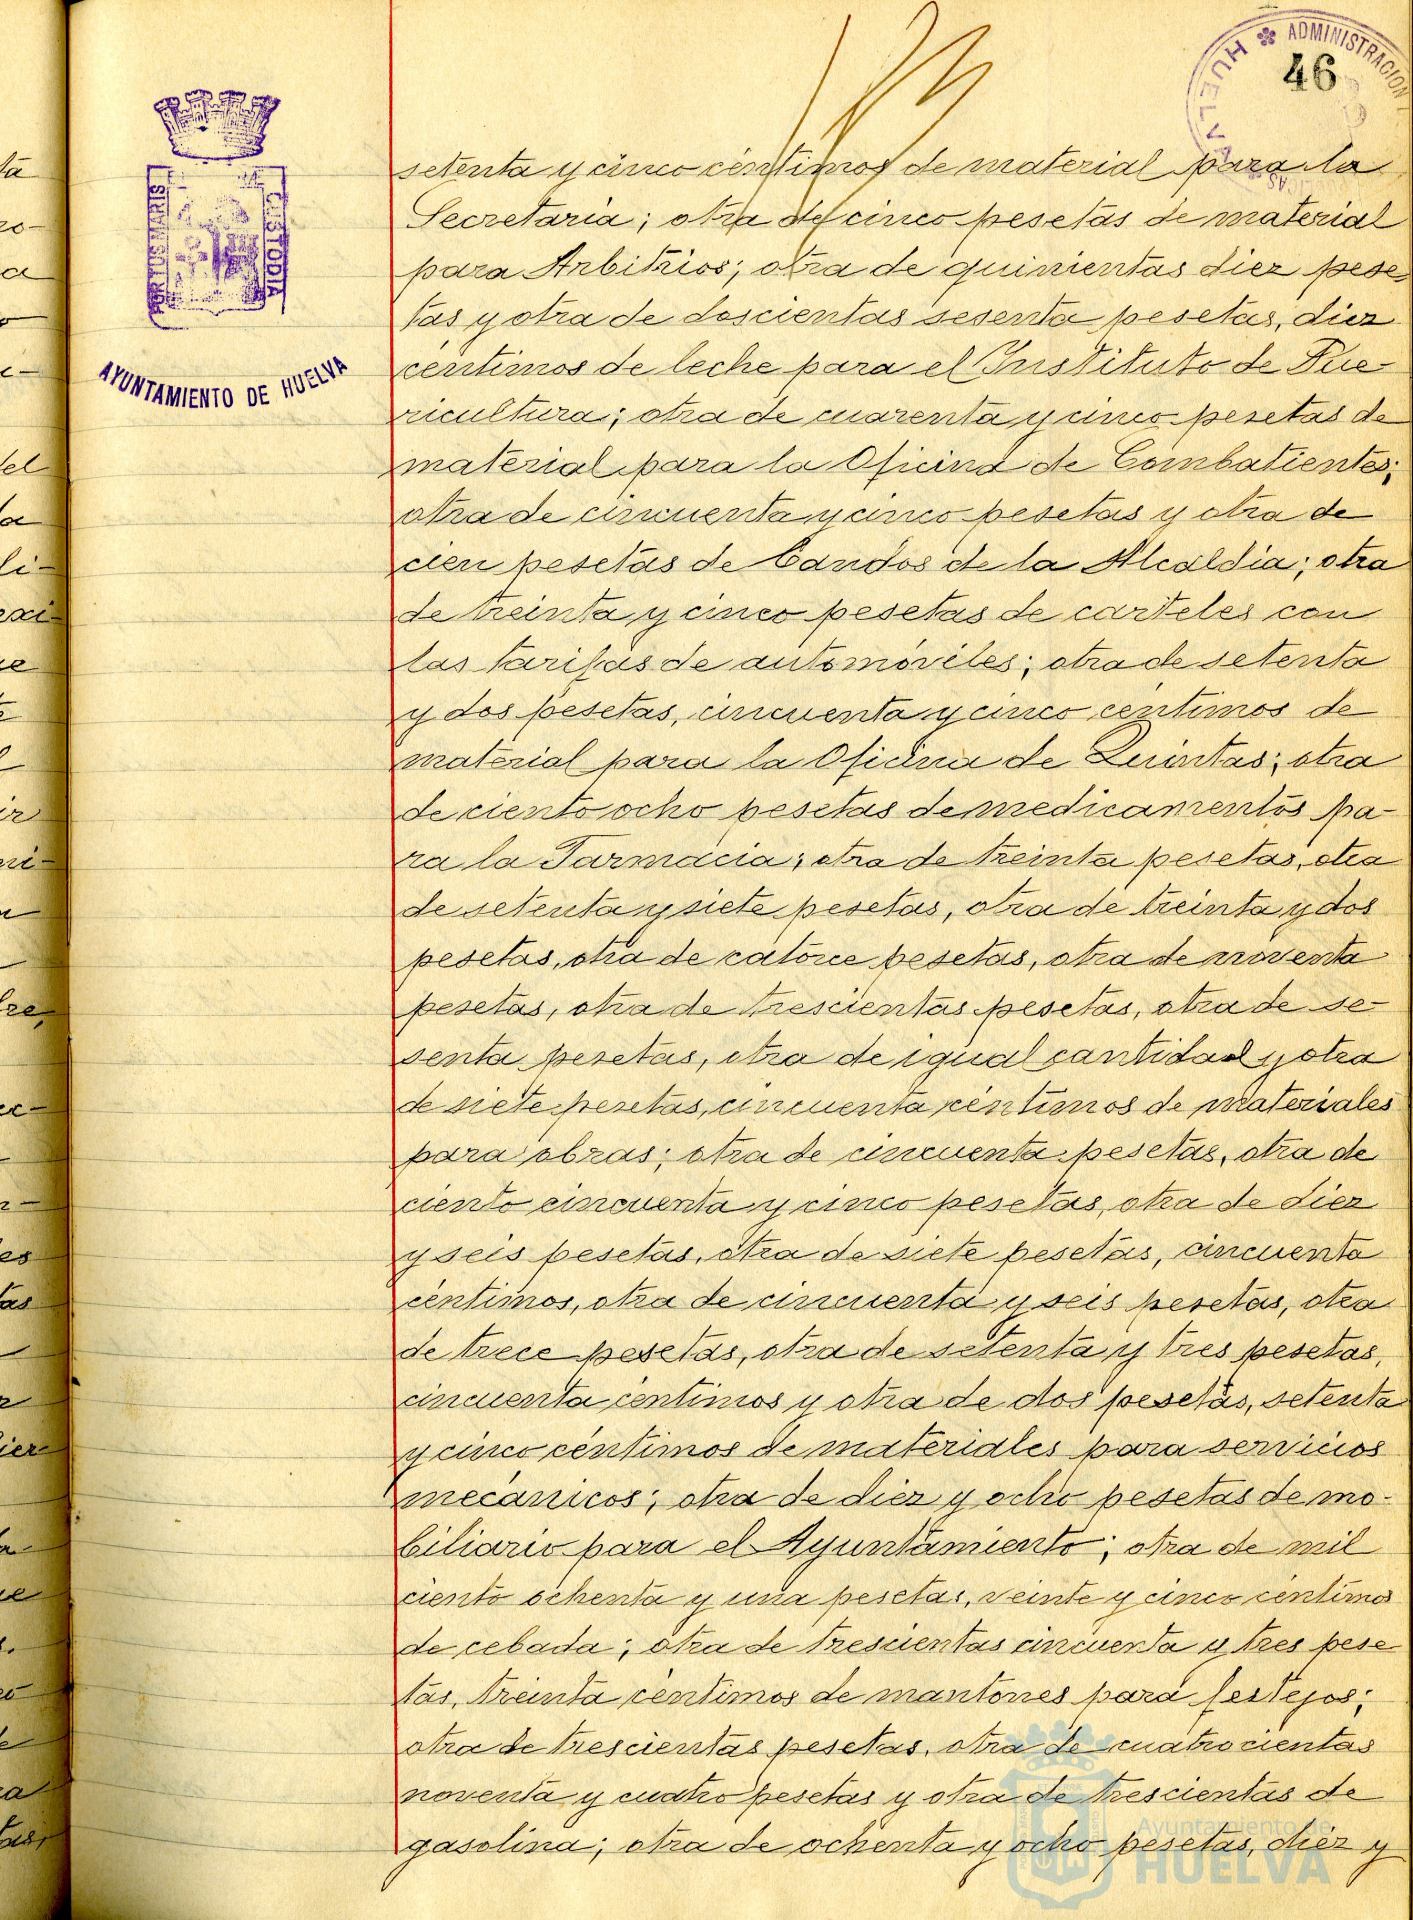 ADMINISTRACION
HUELVA
46
PORTUS MARIS
CUSTODIA
AYUNTAMIENTO DE HUELVA
setenta y cinco céntimos de material para la
Secretaria; otra de cinco pesetas de material
para Arbitrios; otra de quinientas diez pese-
tas y otra de doscientas sesenta pesetas, diez
céntimos de leche para el Instituto de Pue-
ricultura; otra de cuarenta y cinco pesetas de
material para la Oficina de Combatientes;
otra de cincuenta y cinco pesetas y otra de
cien pesetas de bandos de la Alcaldia; otra
de treinta y cinco pesetas de carteles con
las tarifas de automóviles; otra de setenta
y dos pesetas, cincuenta y cinco céntimos de
material para la Oficina de Quintas; otra
de ciento ocho pesetas de medicamentos pa-
ra la Farmacia; otra de treinta pesetas, otra
de setenta y siete pesetas, otra de treinta y dos
pesetas, otra de catorce pesetas, otra de noventa
pesetas, otra de trescientas pesetas, otra de se-
senta pesetas, otra de igual cantidad y otra
de siete pesetas, cincuenta céntimos de materiales
para obras; otra de cincuenta pesetas, otra de
ciento cincuenta y cinco pesetas, otra de diez
y seis pesetas, otra de siete pesetas, cincuenta
céntimos, otra de cincuenta y seis pesetas, otra
de trece pesetas, otra de setenta y tres pesetas,
cincuenta céntimos y otra de dos pesetas, setenta
y cinco céntimos de materiales para servicios
mecánicos; otra de diez y ocho pesetas de mo-
biliario para el Ayuntamiento; otra de mil
ciento ochenta y una pesetas, veinte y cinco céntimos
de cebada; otra de trescientas cincuenta y tres pese
tas, treinta céntimos de mantones para festejos;
otra de trescientas pesetas, otra de cuatrocientas
noventa y cuatro pesetas y otra de trescientas de
gasolina; otra de ochenta y ocho pesetas, diez y
Ayuntamiento de
HUELVA